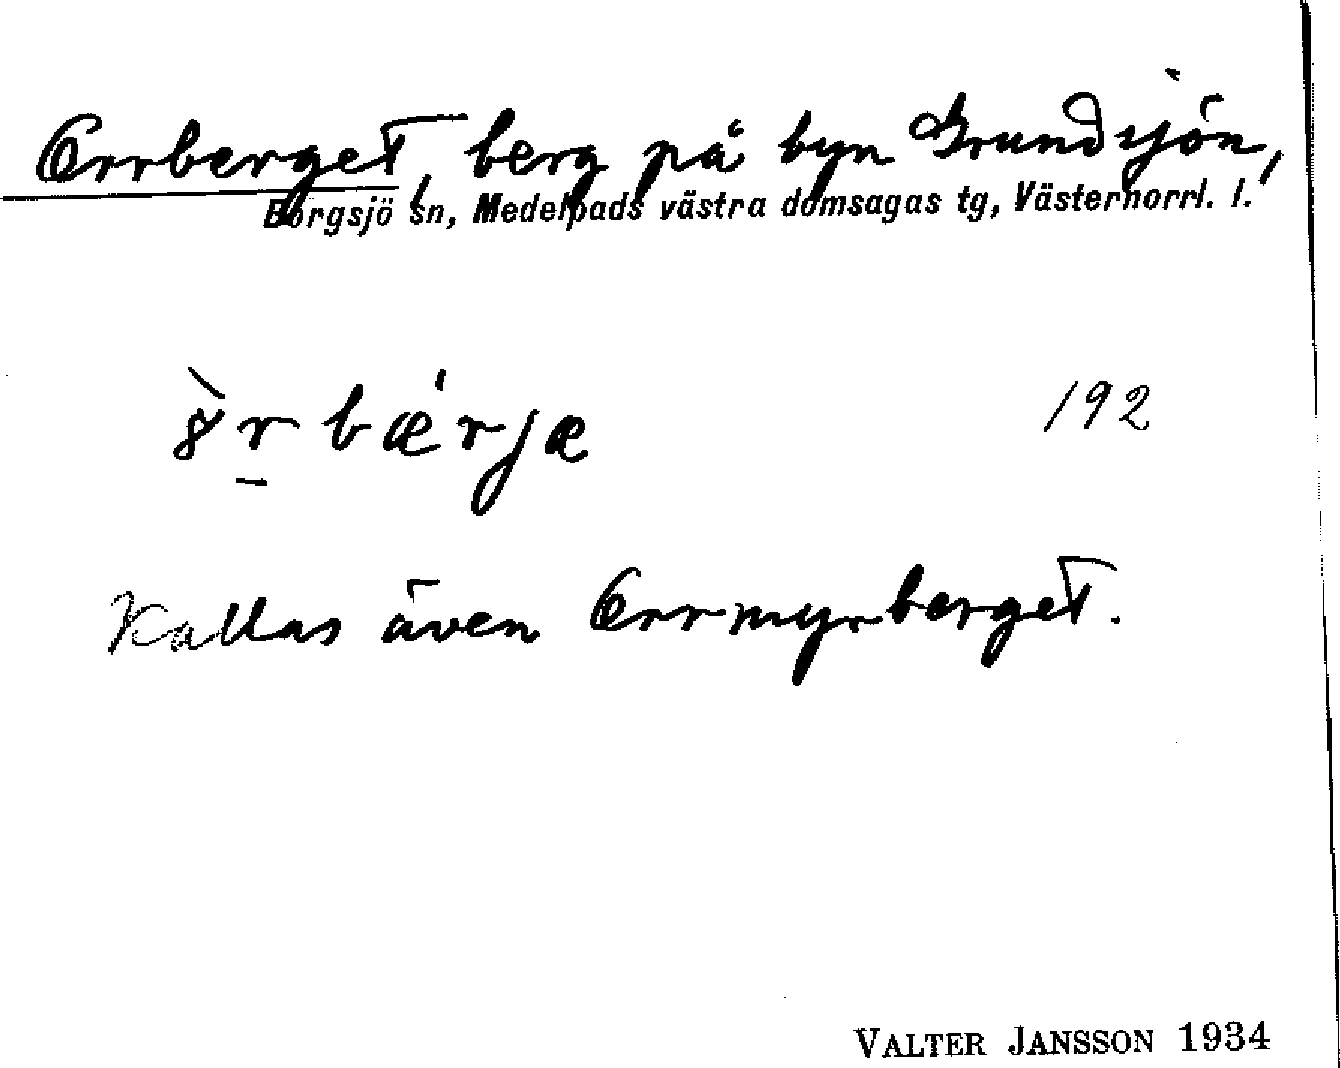 Orrberget, berg på byn Grundsjön,
Borgsjö sn, Medelpads västra domsagas tg, Västernorrl. l.
ȣ̀r̠bǽrjæ 192
Kallas även Orrmyrberget.
VALTER JANSSON 1934